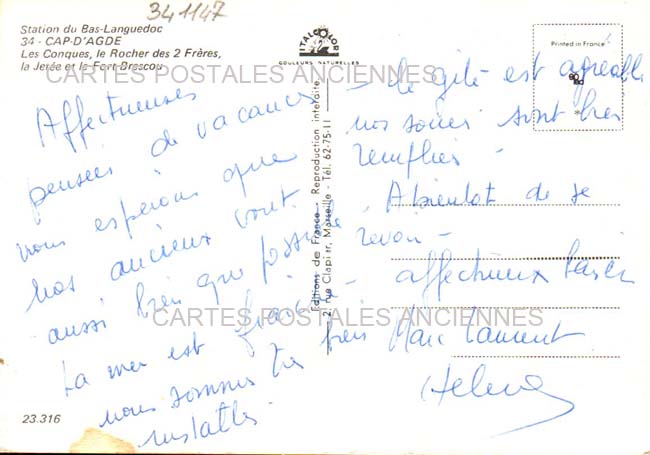 341147
Station du Bas-Languedoc
34 - CAP-D'AGDE
Les Conques, le Rocher des 2 Frères,
la Jetée et le Fort-Brescou
CARTES POSTALES ANCIENNES
Affectueuses
pensées de vacances
nous espérons que
nos anciens vont
aussi bien que possible
La mer est fraiche
nous sommes très bien
installés.
23.316
ITALCOLOR
COULEURS NATURELLES
Editions de France - Reproduction interdite
2, rue Clapier, Marseille - Tél. 62-75-11
Printed in France
- Le gîte est agréable
nos soirées sont très
remplies -
A bientot de se
revoir -
affectueux baisers
CARTES POSTALES ANCIENNES
Marc Laurent
Helene